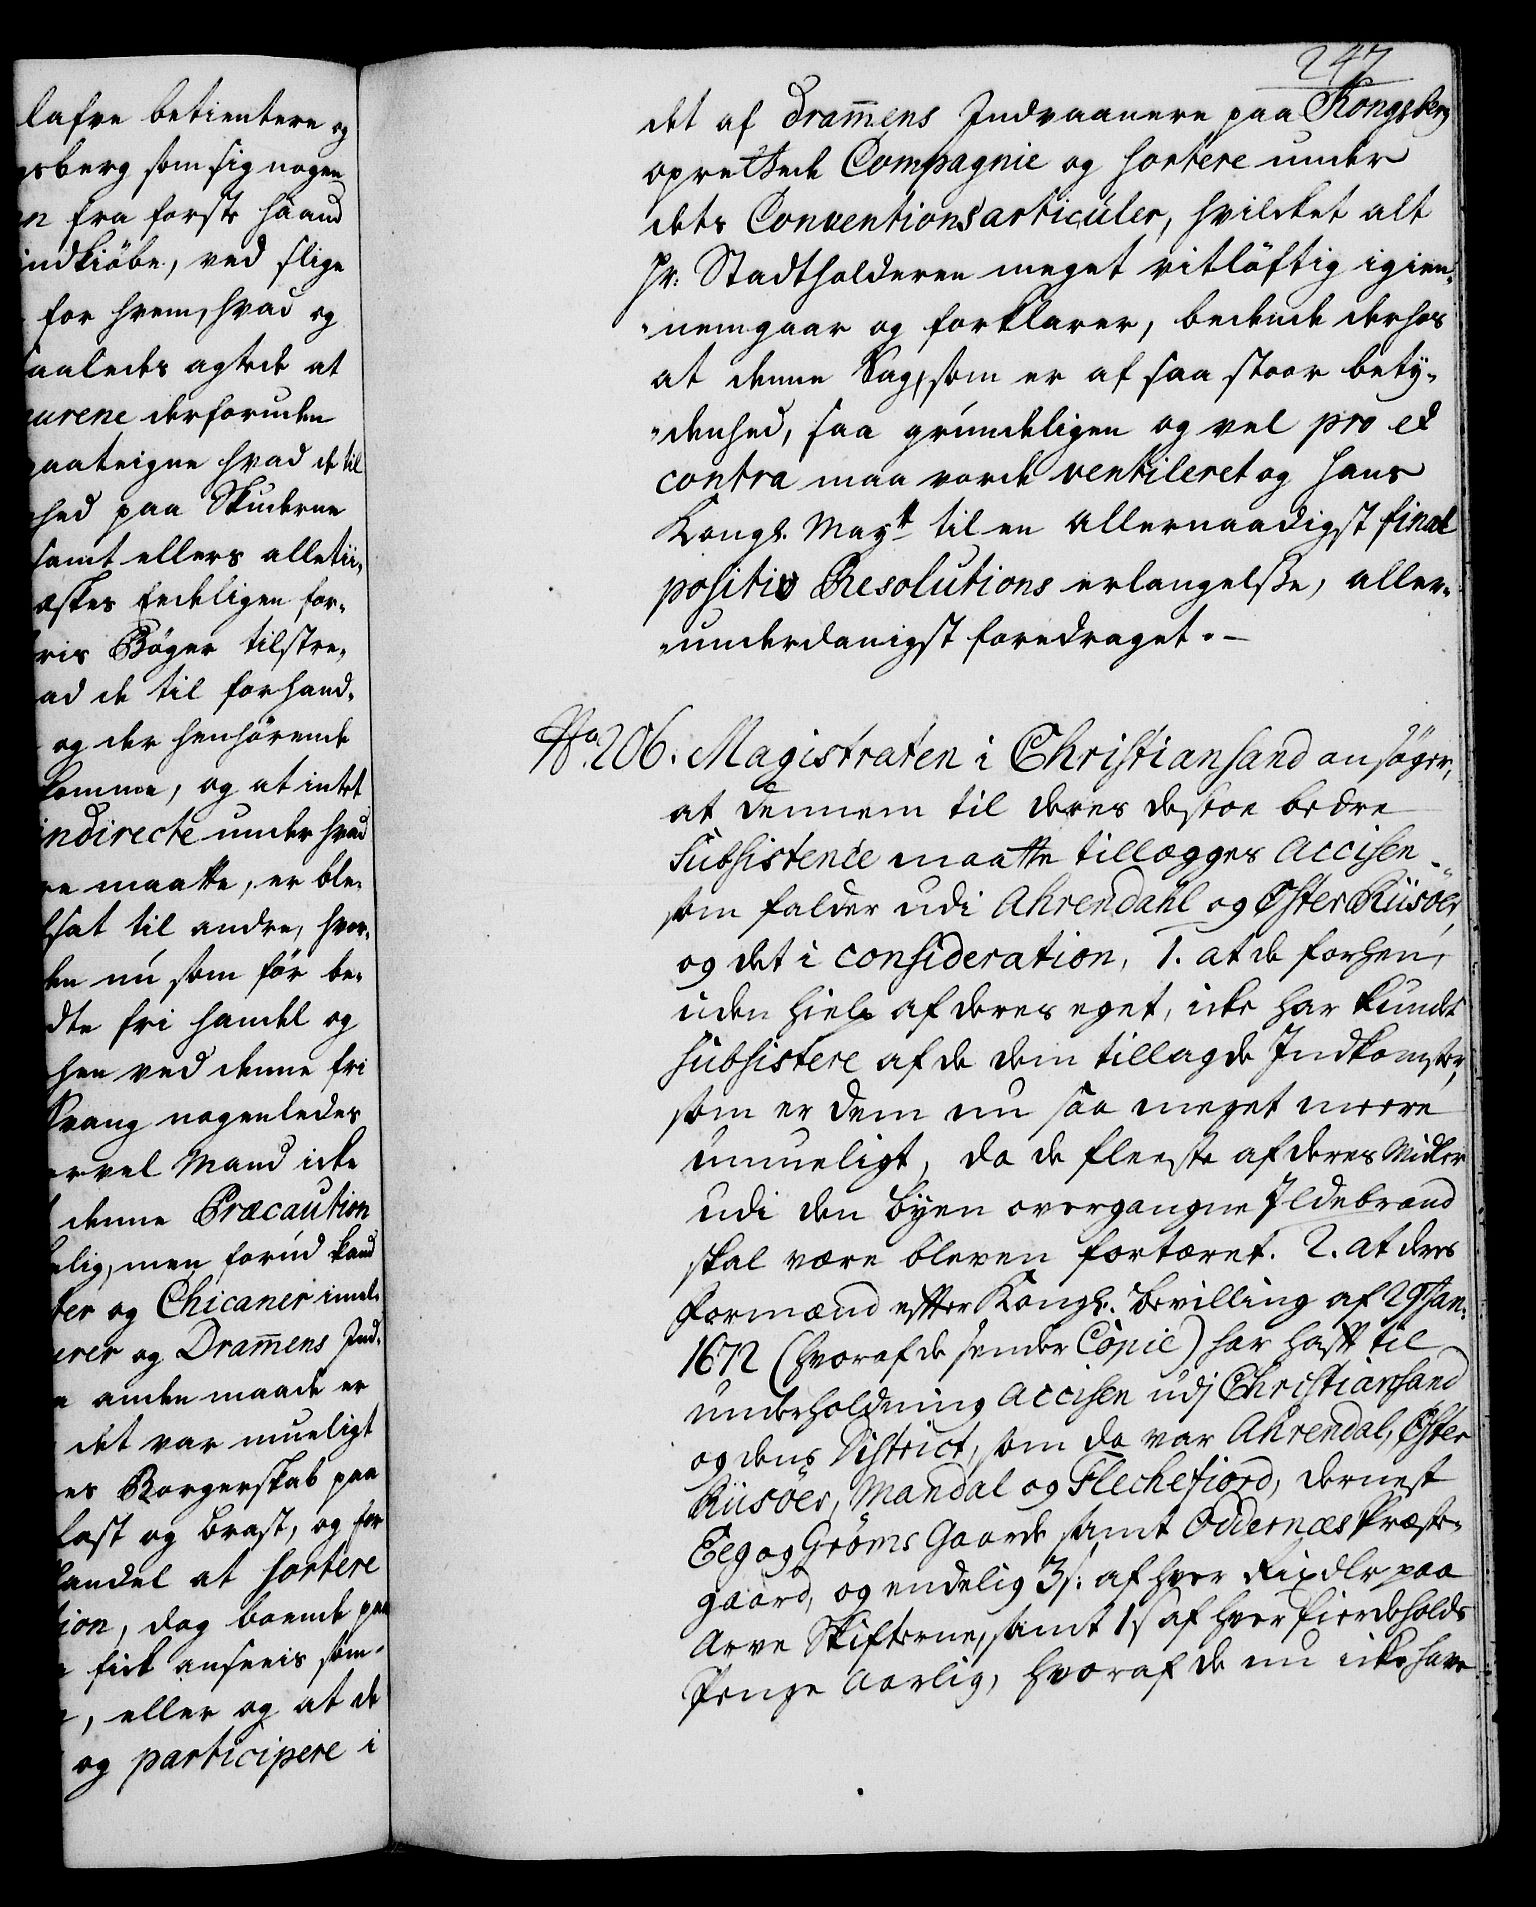 lafve betientere og
gsberg som sig nogen
en fra første haand
indkiöbe, ved slige
for hvem, hvad og
saaledes agtede at
eurene derforuden
paateigne hvad de til
hed paa Skuderne
samt ellers alletii„
æskes Eedeligen for„
ris Bøger tilstre„
ad de til forhand„
og der henhörende
komme, og at intet
indirecte under hvad
re maatte, er ble„
sat til andre, hvor„
den nú som för be„
dte fri handel og
hen ved denne fri
Svang nogenledes
ervel Mand icke
denne Præcaution
elig, men forúd kand
ter og Chicaner imel„
erer og Dram̅ens Ind„
anden maade er
det var mueligt
es Borgerskab paa
last og brast, og for
handel at sortere
ion, dog boende paa
fick ansees som„
, eller og at de
og participere i
247
det af Dram̅ens Indvaanere paa Kongsberg
oprettede Compagnie og sortere under
dets Conventionsarticúler, hvilcket alt
Hr: Stadtholderen meget vitlöftig igien„
„nemgaar og forklarer, bedende derhos
at denne Sag, som er af saa stoor bety„
„denhed, saa grúndeligen og vel pro et
contra maa vorde ventileret og Hans
Kongl. Mayt̲t̲ til en allernaadigst final
positiv Resolutions erlangelse, aller„
„underdanigst foredraget. —
No. 206. Magistraten i Christiansand ansöger,
at dennem til deres destoe bedre
Subsistence maatte tillægges Accisen
som falder udi Ahrendahl og Öster Riisöer,
og det i consideration, 1. at de forhen,
uden hielp af deres eget, icke har kundet
subsistere af de dem tillagde Indkomster,
som er dem nu saa meget meere
umueligt, da de fleeste af deres Midler
udi den byen overgangne Ildebrand
skal være bleven fortæret. 2. at deres
Formænd efter Kongl. bevilling af 29 Jan:
1672 (hvoraf de sender Copie) har hafft til
underholdning Accisen udj Christiansand
og dens District, som da var Ahrendal, Öster
Riisöer, Mandal og Flechefiord, dernest
Eeg og Gröms Gaarde samt Oddernæs Præste„
gaard, og endelig 3 s: af hver Rixdlr paa
Arve Skifterne, samt 1 s af hver Fierdeholds
Penge Aarlig, hvoraf de nu icke have